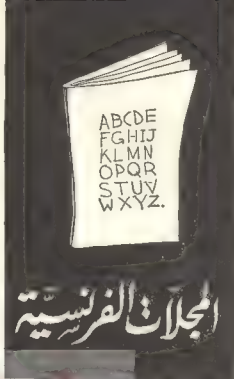 ABCDE
FGHIJ
KLMN
OPQR
STUV
WXYZ.
المجلات الفرنسية